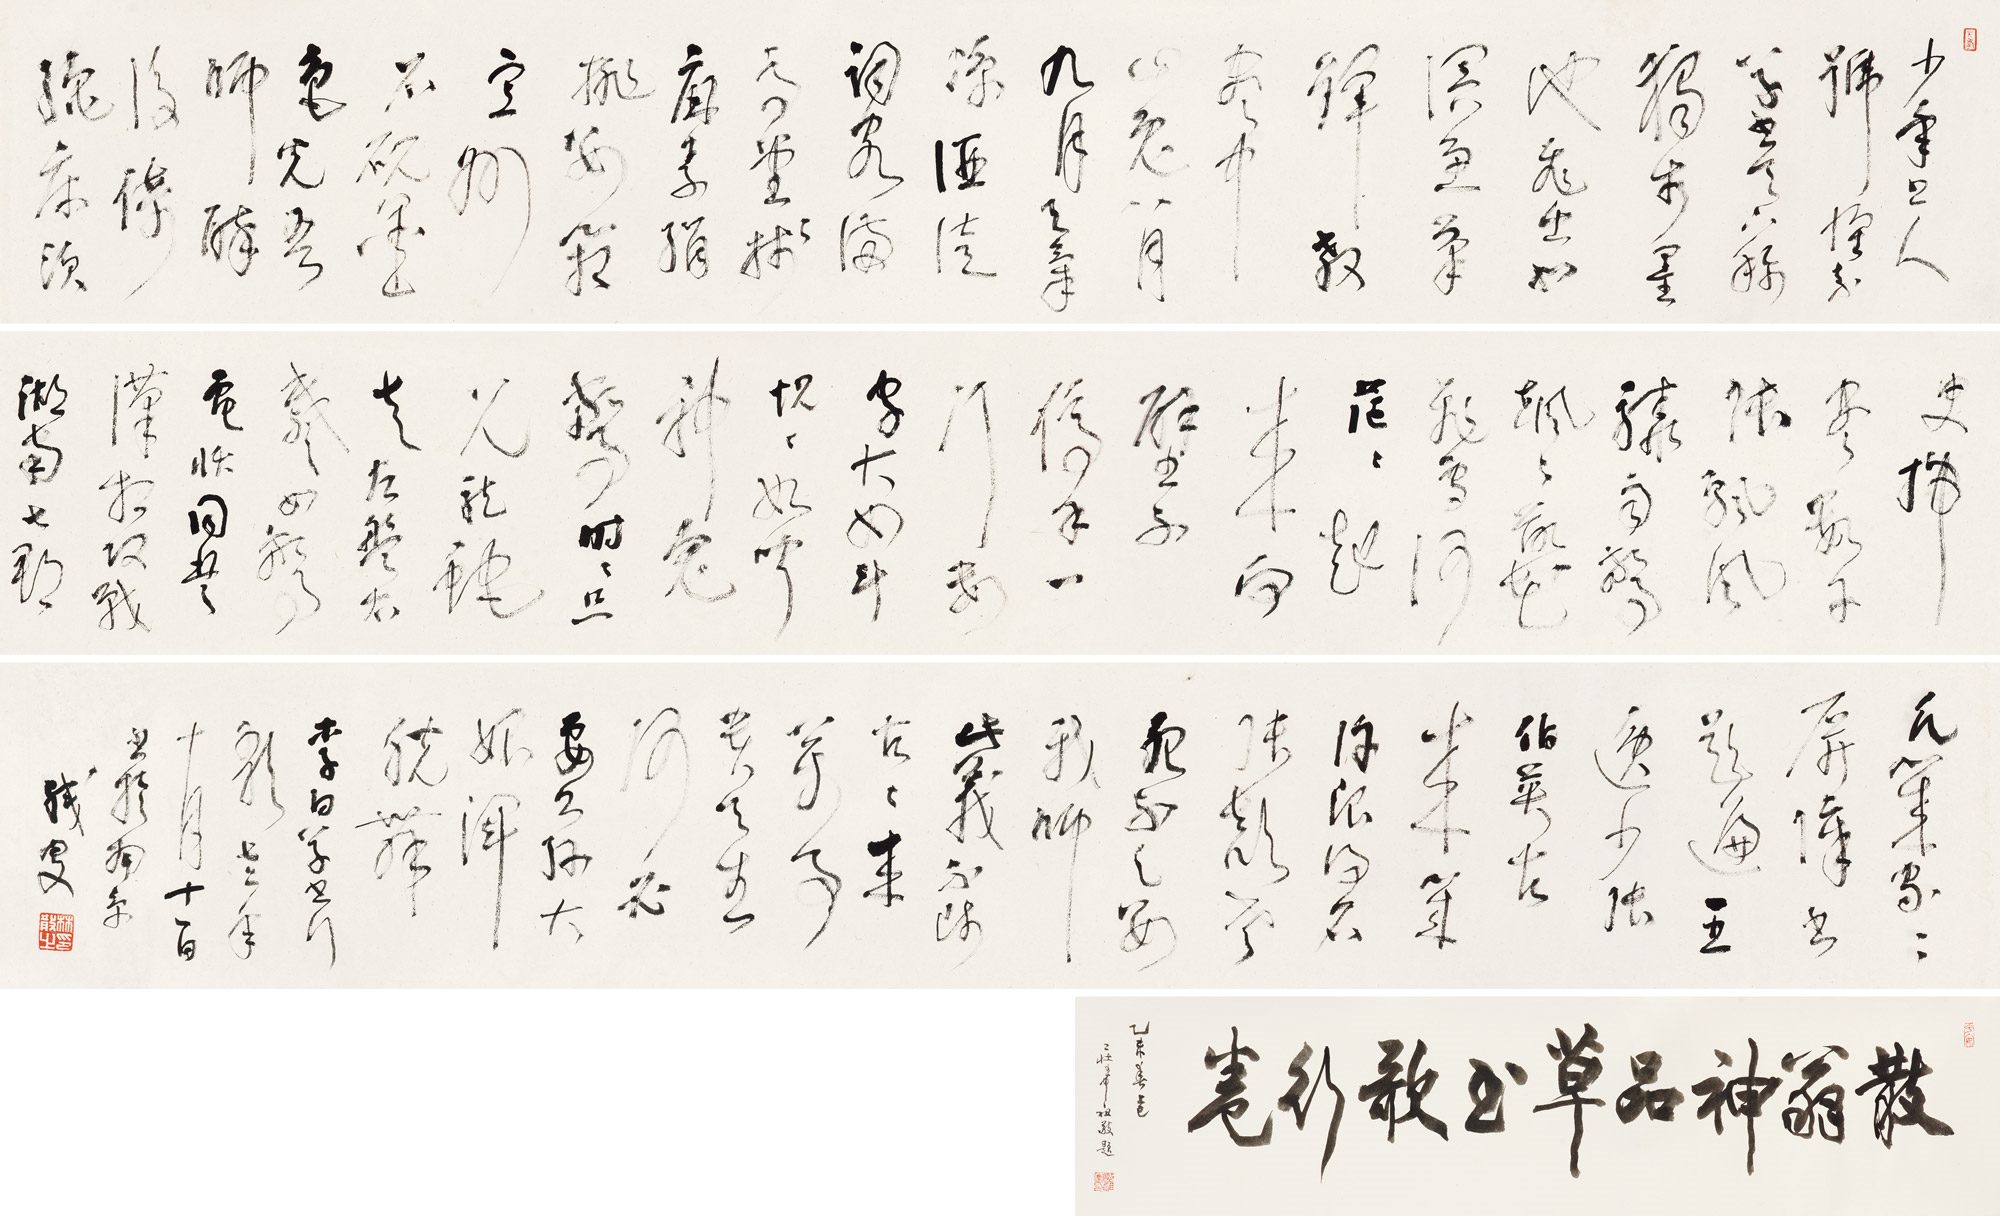 少年上人
號懷素
草書天下稱
獨步墨
池飛出北
溟魚筆
鋒殺
盡中
山兔八月
九月天氣
凉酒徒
詞客滿
高堂牋
麻素絹
排數箱
宣州
石硯墨
色光吾
師醉
後倚
繩床須
臾掃
盡數千
張飄風
驟雨驚
颯々落花
飛雪何
茫々起
來向
壁不
停手一
行數
字大如斗
怳々如聞
神鬼
驚時々只
見龍蛇
走左盤右
蹙如驚
電狀同楚
漢相攻戰
湖南七郡
凡幾家々
屏障書
題遍王
逸少張
伯英古
來幾
許浪得名
張顛老
死不足數
我師
此義不師
古々來
萬事
貴天生
何必
要公孫大
娘渾
脱舞
李白草書行
歌七三年
十月十一日
書於南京
叟
林散之印
散翁神品草書歌行卷
乙未
題